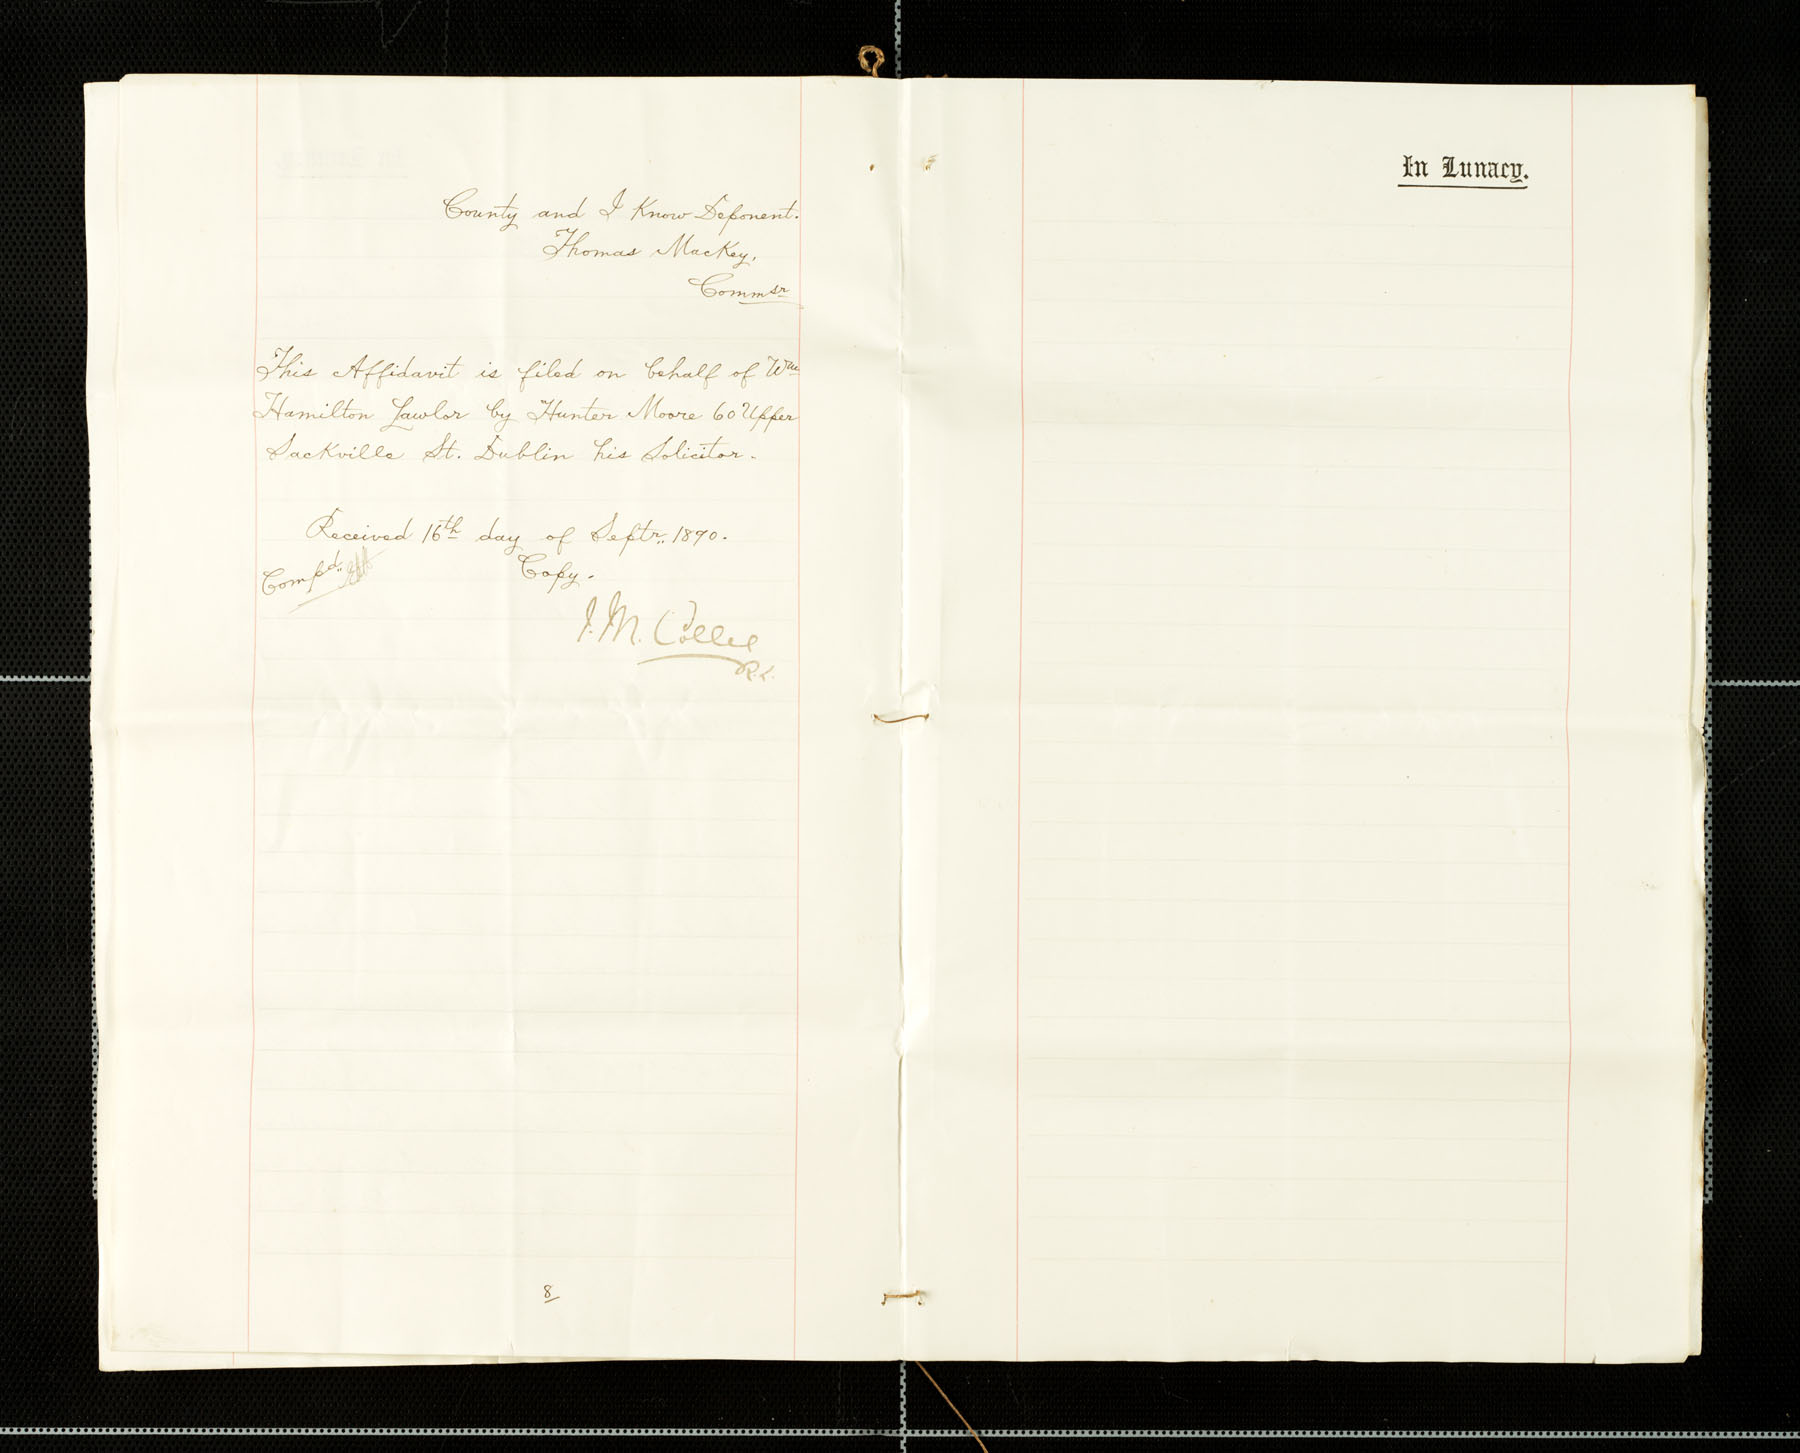 County and I Know Deponent.
Thomas Mackey,
Commsr
This Affidavit is filed on behalf of Wm
Hamilton Lawlor by Hunter Moore 60 Upper
Sackville St. Dublin his Solicitor.
Received 16th day of Septr,, 1890.
Compd,,
Copy.
J. M. Colles
R.L.
8
In Lunacy.